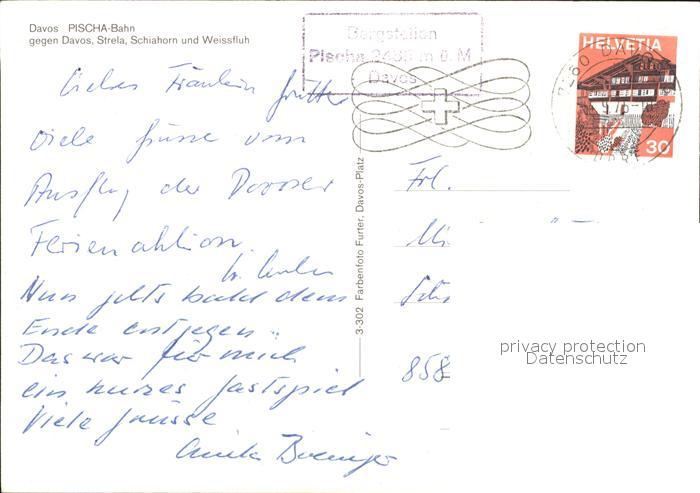 Davos PISCHA-Bahn
gegen Davos, Strela, Schiahorn und Weissfluh
Bergstation
Pischa 2485 m ü. M
Davos
HELVETIA
30
7260 DAVOS
Liebes Fräulein
Viele Grüsse vom
Ausflug der Davoser
Ferienaktion.
Nun gehts bald dem
Ende entgegen..
Das war für mich
ein kurzes Gastspiel
Viele Grüsse
3-302 Farbenfoto Furter, Davos-Platz
Frl.
858
privacy protection
Datenschutz